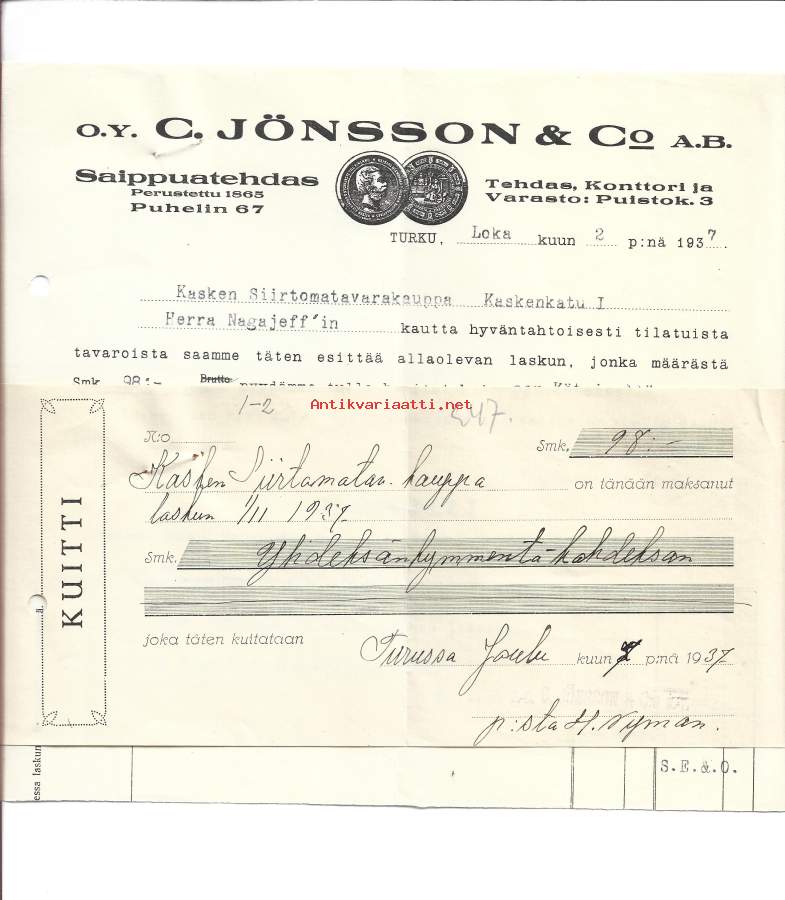 O.Y. C. JÖNSSON & Co A.B.
Saippuatehdas
Perustettu 1865
Puhelin 67
Tehdas, Konttori ja
Varasto: Puistok. 3
TURKU, Loka kuun 2 p:nä 1937.
Kasken Siirtomatavarakauppa Kaskenkatu I
Herra Nagajeff'in kautta hyväntahtoisesti tilatuista
tavaroista saamme täten esittää allaolevan laskun, jonka määrästä
Smk 98:- Brutto
Antikvariaatti.net
1-2
247.
KUITTI
N:o
Smk. 98:-
Kasken Siirtamatav. kauppa on tänään maksanut
laskun 1/11 1937
Smk. Yhdeksänkymmentä-kahdeksan
joka täten kuitataan
Turussa Joulu kuun 7 p:nä 1937
p:sta H. Nyman.
essa laskun
S.E.&.O.